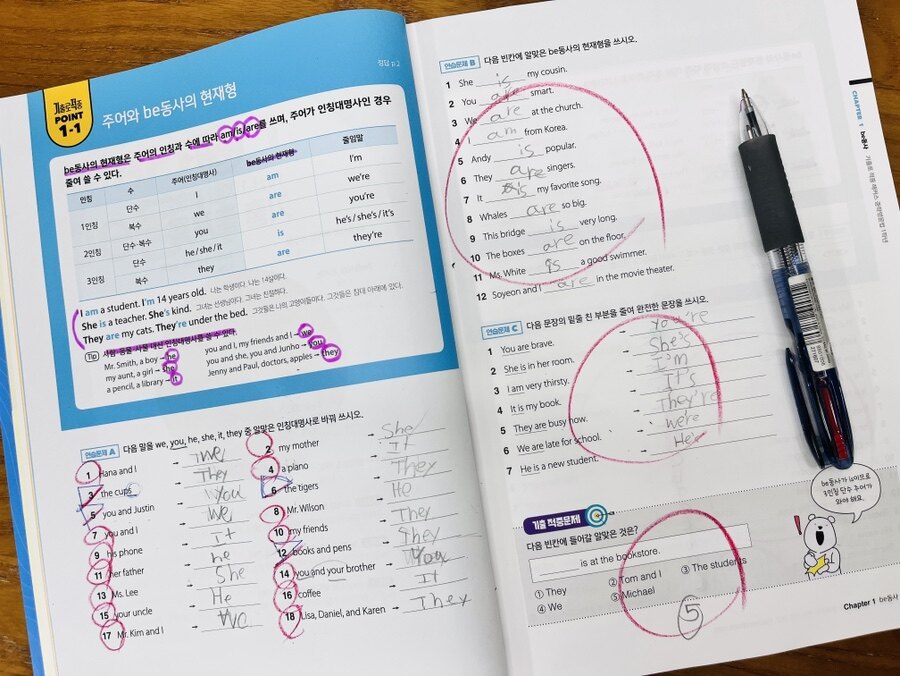 기출로 적중
POINT
1-1
주어와 be동사의 현재형
정답 p.2
be동사의 현재형은 주어의 인칭과 수에 따라 am/is/are를 쓰며, 주어가 인칭대명사인 경우
줄여 쓸 수 있다.
인칭 수 주어(인칭대명사) be동사의 현재형 줄임말
1인칭 단수 I am I'm
복수 we are we're
2인칭 단수·복수 you are you're
3인칭 단수 he / she / it is he's / she's / it's
복수 they are they're
I am a student. I'm 14 years old. 나는 학생이다. 나는 14살이다.
She is a teacher. She's kind. 그녀는 선생님이다. 그녀는 친절하다.
They are my cats. They're under the bed. 그것들은 나의 고양이들이다. 그것들은 침대 아래에 있다.
Tip 사람·동물·사물 대신 인칭대명사를 쓸 수 있다.
Mr. Smith, a boy → he you and I, my friends and I → we
my aunt, a girl → she you and she, you and Junho → you
a pencil, a library → it Jenny and Paul, doctors, apples → they
연습문제 A 다음 말을 we, you, he, she, it, they 중 알맞은 인칭대명사로 바꿔 쓰시오.
1 Hana and I → We 2 my mother → She
3 the cups → They 4 a piano → It
5 you and Justin → You 6 the tigers → They
7 you and I → We 8 Mr. Wilson → He
9 his phone → It 10 my friends → They
11 her father → he 12 books and pens → They
13 Ms. Lee → She 14 you and your brother → You
15 your uncle → He 16 coffee → It
17 Mr. Kim and I → We 18 Lisa, Daniel, and Karen → They
연습문제 B 다음 빈칸에 알맞은 be동사의 현재형을 쓰시오.
1 She is my cousin.
2 You are smart.
3 We are at the church.
4 I am from Korea.
5 Andy is popular.
6 They are singers.
7 It is my favorite song.
8 Whales are so big.
9 This bridge is very long.
10 The boxes are on the floor.
11 Ms. White is a good swimmer.
12 Soyeon and I are in the movie theater.
연습문제 C 다음 문장의 밑줄 친 부분을 줄여 완전한 문장을 쓰시오.
1 You are brave. → You're
2 She is in her room. → She's
3 I am very thirsty. → I'm
4 It is my book. → It's
5 They are busy now. → They're
6 We are late for school. → we're
7 He is a new student. → He's
기출 적중문제
다음 빈칸에 들어갈 알맞은 것은?
is at the bookstore.
① They ② Tom and I ③ The students
④ We ⑤ Michael
5
be동사가 is이므로
3인칭 단수 주어가
와야 해요.
Chapter 1 be동사
CHAPTER 1 be동사